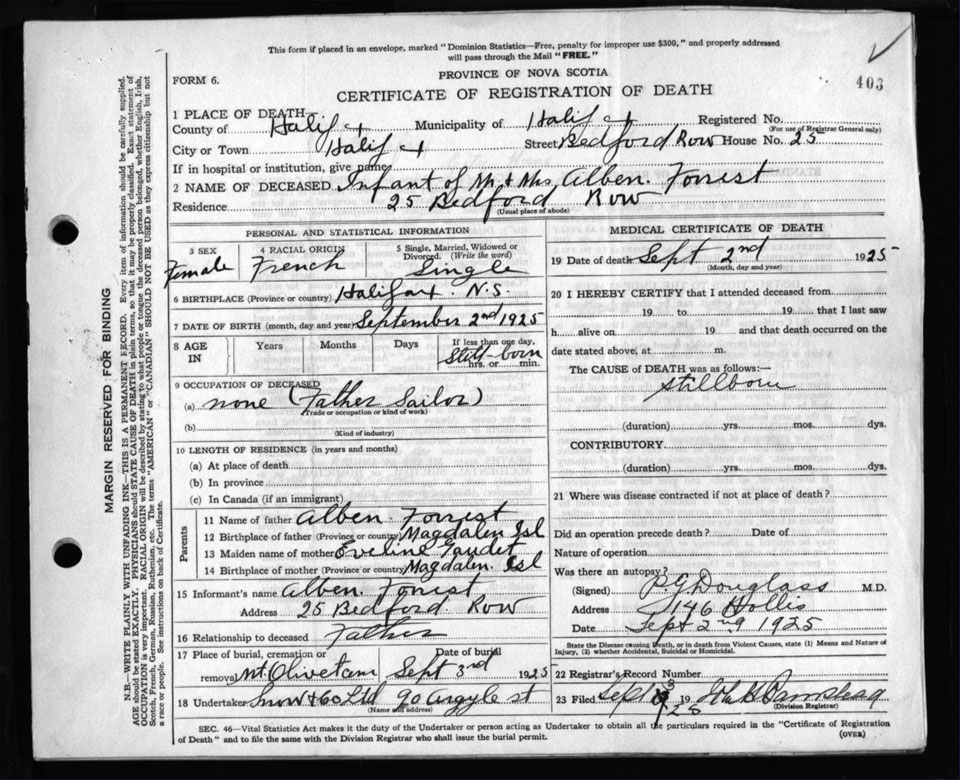 This form if placed in an envelope, marked "Dominion Statistics—Free, penalty for improper use $300," and properly addressed
will pass through the Mail "FREE."
403
FORM 6.
PROVINCE OF NOVA SCOTIA
CERTIFICATE OF REGISTRATION OF DEATH
1 PLACE OF DEATH
County of Halifax Municipality of Halifax Registered No.
(For use of Registrar General only)
City or Town Halifax Street Bedford Row House No. 25
If in hospital or institution, give name
2 NAME OF DECEASED Infant of Mr & Mrs, Alben. Forrest
Residence 25 Bedford Row
(Usual place of abode)
PERSONAL AND STATISTICAL INFORMATION
3 SEX Female
4 RACIAL ORIGIN French
5 Single, Married, Widowed or
Divorced. (Write the word)
Single
6 BIRTHPLACE (Province or country) Halifax. N.S.
7 DATE OF BIRTH (month, day and year) September 2nd 1925
8 AGE IN Years Months Days If less than one day,
Still-born
hrs. or min.
9 OCCUPATION OF DECEASED
(a) none (Father Sailor)
(Trade or occupation or kind of work)
(b)
(Kind of industry)
10 LENGTH OF RESIDENCE (in years and months)
(a) At place of death
(b) In province
(c) In Canada (if an immigrant)
Parents
11 Name of father Alben. Forrest
12 Birthplace of father (Province or country) Magdalen Isl
13 Maiden name of mother Eveline Gaudet
14 Birthplace of mother (Province or country) Magdalen. Isl
15 Informant's name Alben Forrest
Address 25 Bedford. Row
16 Relationship to deceased Father
17 Place of burial, cremation or Date of burial
removal Mt. Olivet Cem, Sept 3rd 1925
18 Undertaker Snow & Co Ltd 90 Argyle st
(Name and address)
MEDICAL CERTIFICATE OF DEATH
19 Date of death Sept 2nd 1925
(Month, day and year)
20 I HEREBY CERTIFY that I attended deceased from
19 to 19 that I last saw
h alive on 19 and that death occurred on the
date stated above, at m.
The CAUSE of DEATH was as follows:—
stillborn
(duration) yrs. mos. dys.
CONTRIBUTORY
(duration) yrs. mos. dys.
21 Where was disease contracted if not at place of death?
Did an operation precede death? Date of
Nature of operation
Was there an autopsy?
(Signed) P.G. Douglass M.D.
Address 146 Hollis
Date Sept 2nd 1925
State the Disease causing Death, or in death from Violent Causes, state (1) Means and Nature of
Injury, (2) whether Accidental, Suicidal or Homicidal.
22 Registrar's Record Number
23 Filed Sept 3 1925
(Division Registrar)
SEC. 46—Vital Statistics Act makes it the duty of the Undertaker or person acting as Undertaker to obtain all the particulars required in the "Certificate of Registration
of Death" and to file the same with the Division Registrar who shall issue the burial permit.
(OVER)
MARGIN RESERVED FOR BINDING
N.B.—WRITE PLAINLY WITH UNFADING INK—THIS IS A PERMANENT RECORD. Every item of information should be carefully supplied.
AGE should be stated EXACTLY. PHYSICIANS should STATE CAUSE OF DEATH in plain terms, so that it may be properly classified. Exact statement of
OCCUPATION is very important. RACIAL ORIGIN will be described by stating to what people or tongue the deceased person belonged, whether English, Irish,
Scotch, French, German, Russian, Ruthenian, etc. The terms "AMERICAN" or "CANADIAN" SHOULD NOT BE USED as they express citizenship but not
a race or people. See instructions on back of Certificate.